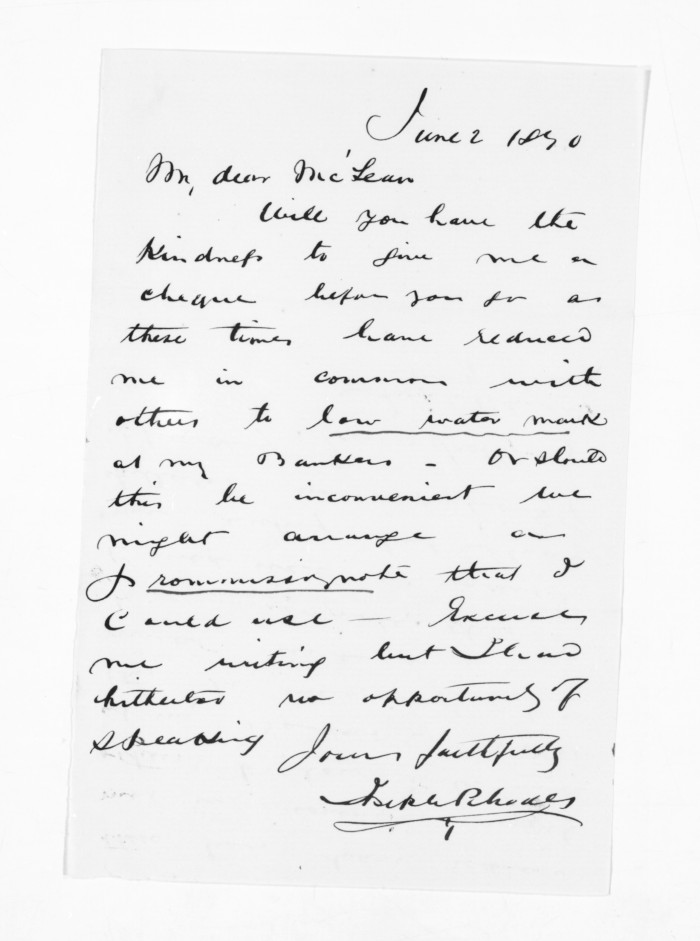 June 2 1870
My dear McLean
Will you have the
Kindness to give me a
cheque before you go as
these times have reduced
me in common with
others to low water mark
at my Bankers - Or should
this be inconvenient we
might arrange a
Prommissorynote that I
Could use — Excuse
me writing but I had
hitherto no opportunity of
speaking Yours faithfully
Joseph Rhodes